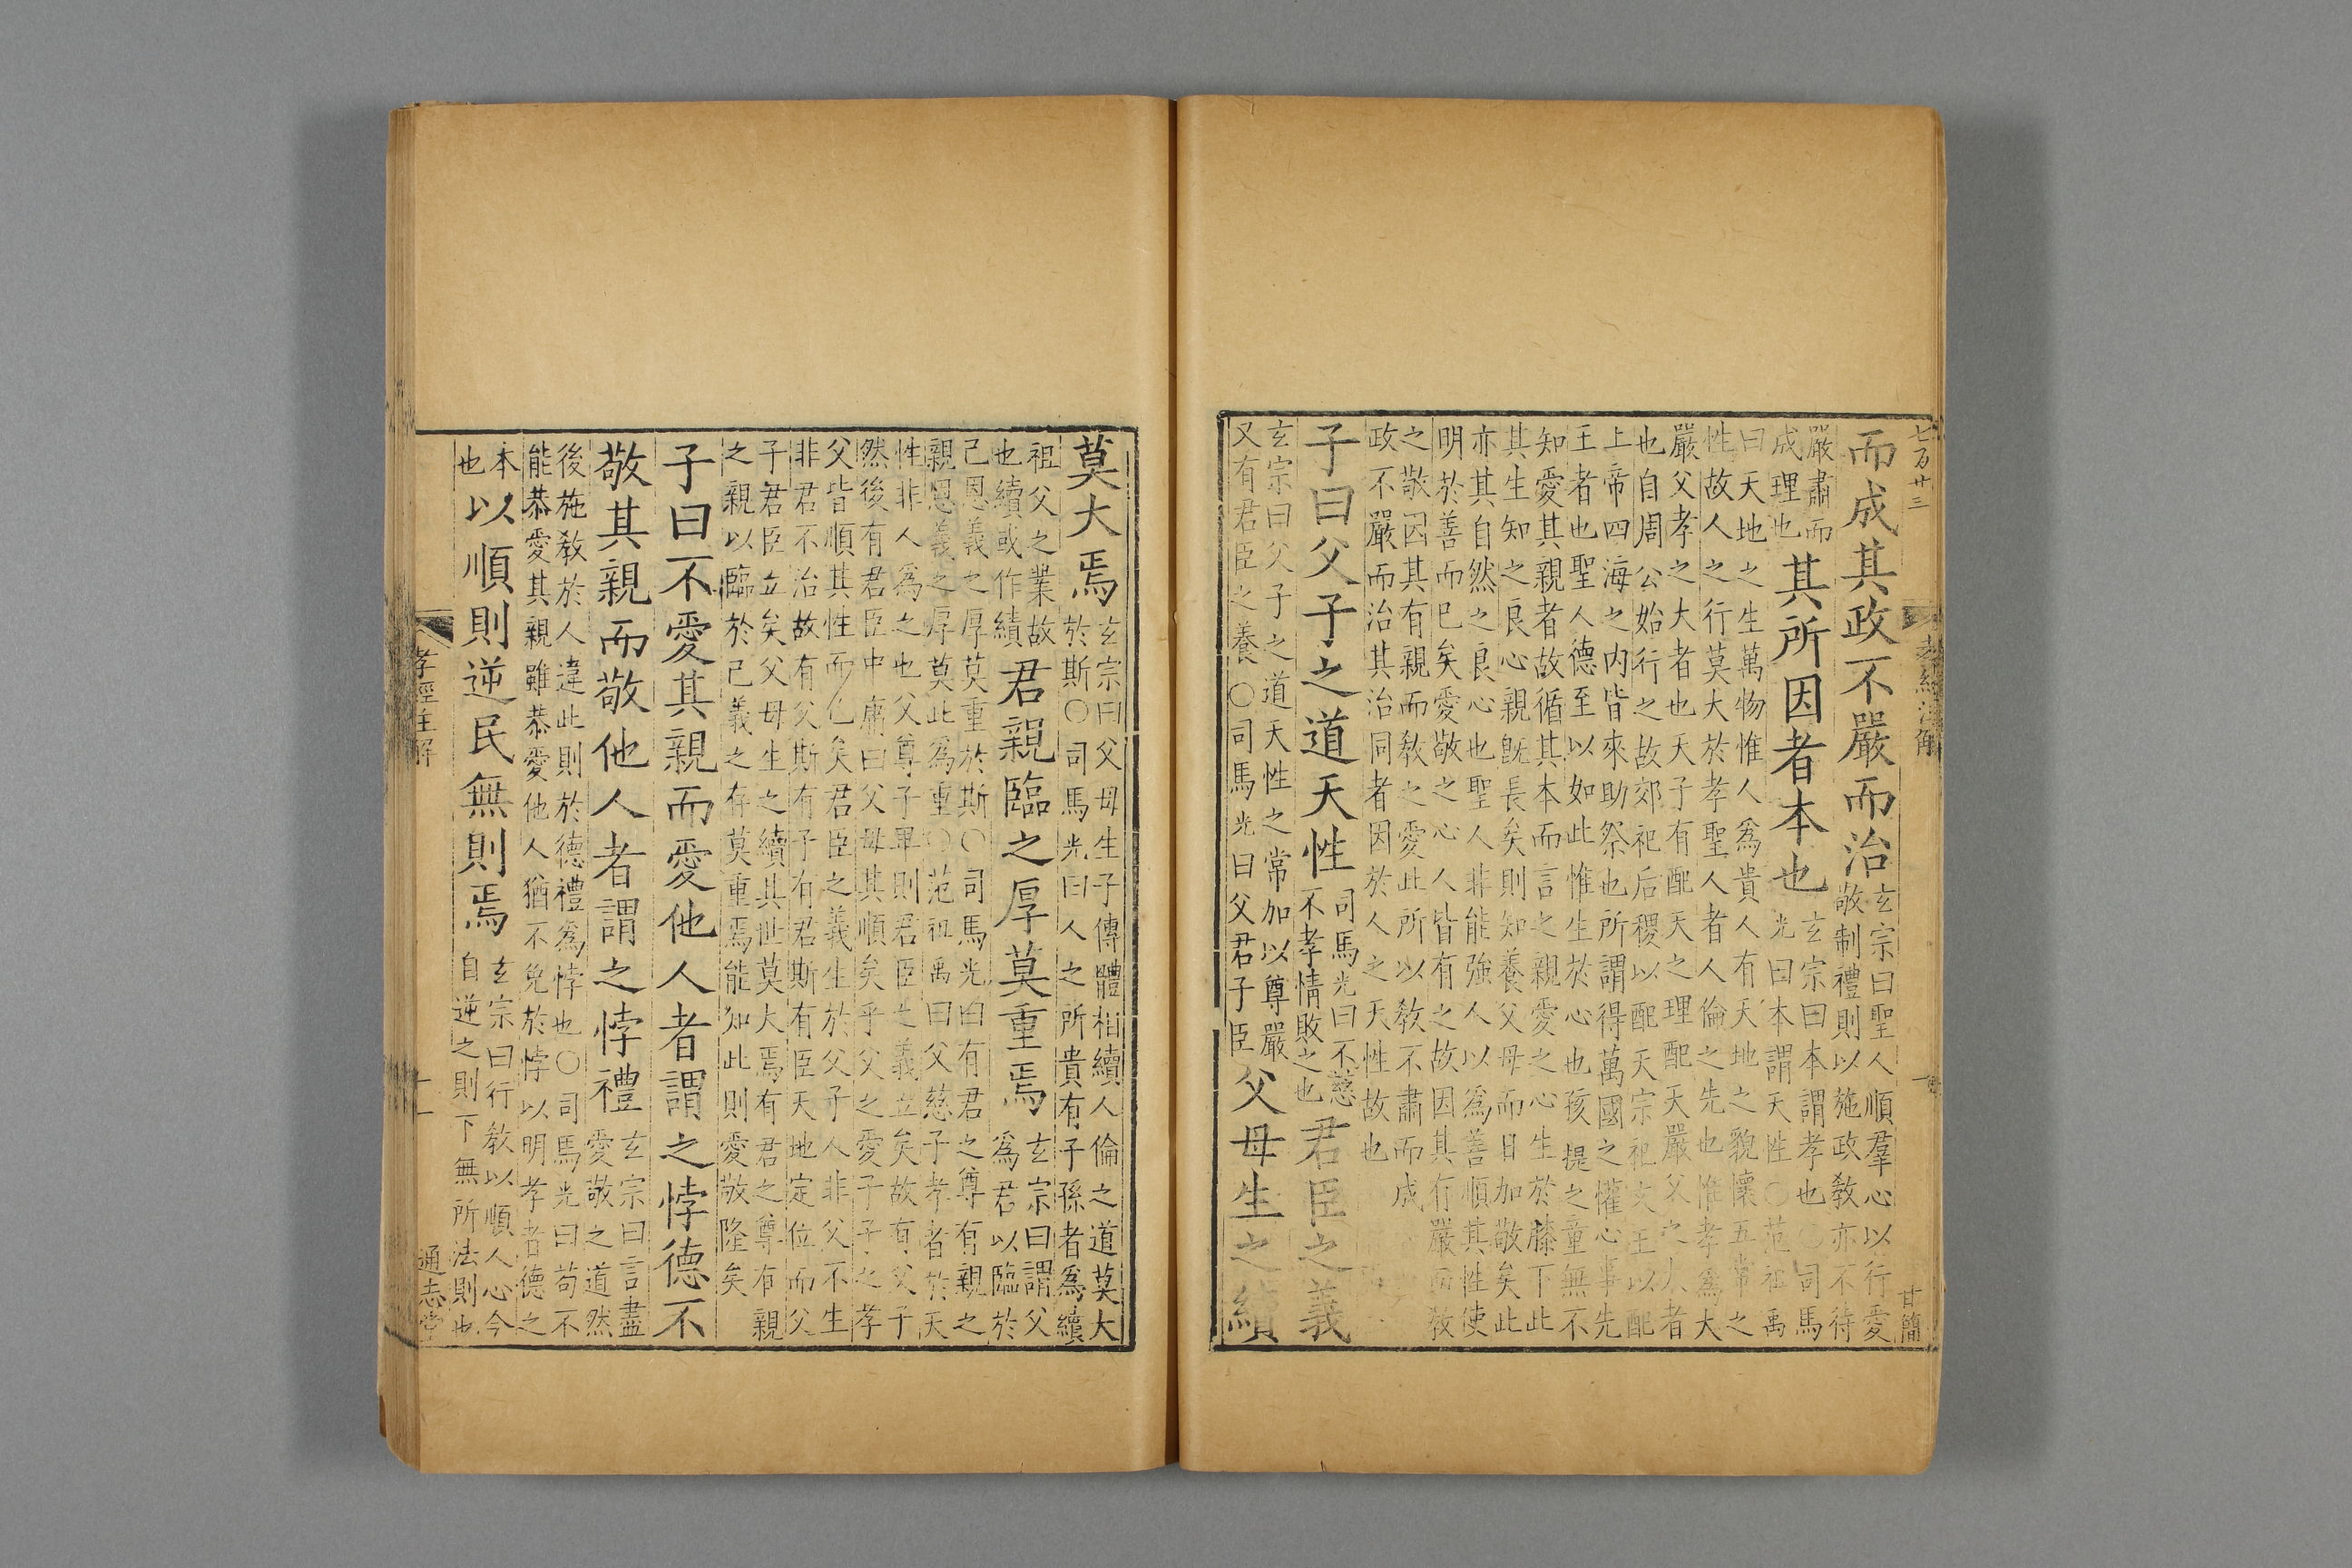 七百廿三
孝經注解
甘簡
而成其政不嚴而治玄宗曰聖人順羣心以行愛
敬制禮則以施政敎亦不待
嚴肅而
成理也其所因者本也玄宗曰本謂孝也 司馬
光曰本謂天性○范祖禹
曰天地之生萬物惟人爲貴人有天地之貌懷五常之
性故人之行莫大於孝聖人者人倫之先也惟孝爲大
嚴父孝之大者也天子有配天之理配天嚴父之大者
也自周公始行之故郊祀后稷以配天宗祀文王以配
上帝四海之内皆來助祭也所謂得萬國之懽心事先
王者也聖人德至以如此惟生於心也孩提之童無不
知愛其親者故循其本而言之親愛之心生於膝下此
其生知之良心親旣長矣則知養父母而日加敬矣此
亦其自然之良心也聖人非能強人以爲善順其性使
明於善而已矣愛敬之心人皆有之故因其有嚴而敎
之敬因其有親而敎之愛此所以敎不肅而成
政不嚴而治其治同者因於人之天性故也
子曰父子之道天性司馬光曰不慈
不孝情敗之也君臣之義
玄宗曰父子之道天性之常加以尊嚴
又有君臣之養○司馬光曰父君子臣父母生之續
莫大焉玄宗曰父母生子傳體相續人倫之道莫大
於斯○司馬光曰人之所貴有子孫者爲續
祖父之業故
也續或作績君親臨之厚莫重焉玄宗曰謂父
爲君以臨於
己恩義之厚莫重於斯○司馬光曰有君之尊有親之
親恩義之厚莫此爲重○范祖禹曰父慈子孝者於天
性非人爲之也父尊子卑則君臣之義立矣故有父子
然後有君臣中庸曰父母其順矣乎父之愛子子之孝
父皆順其性而已矣君臣之義生於父子人非父不生
非君不治故有父斯有子有君斯有臣天地定位而父
子君臣立矣父母生之續其世莫大焉有君之尊有親
之親以臨於己義之存莫重焉能知此則愛敬隆矣
子曰不愛其親而愛他人者謂之悖德不
敬其親而敬他人者謂之悖禮玄宗曰言盡
愛敬之道然
後施敎於人違此則於德禮爲悖也○司馬光曰苟不
能恭愛其親雖恭愛他人猶不免於悖以明孝者德之
本
也以順則逆民無則焉玄宗曰行敎以順人心今
自逆之則下無所法則也
孝經注解
十一
通志堂